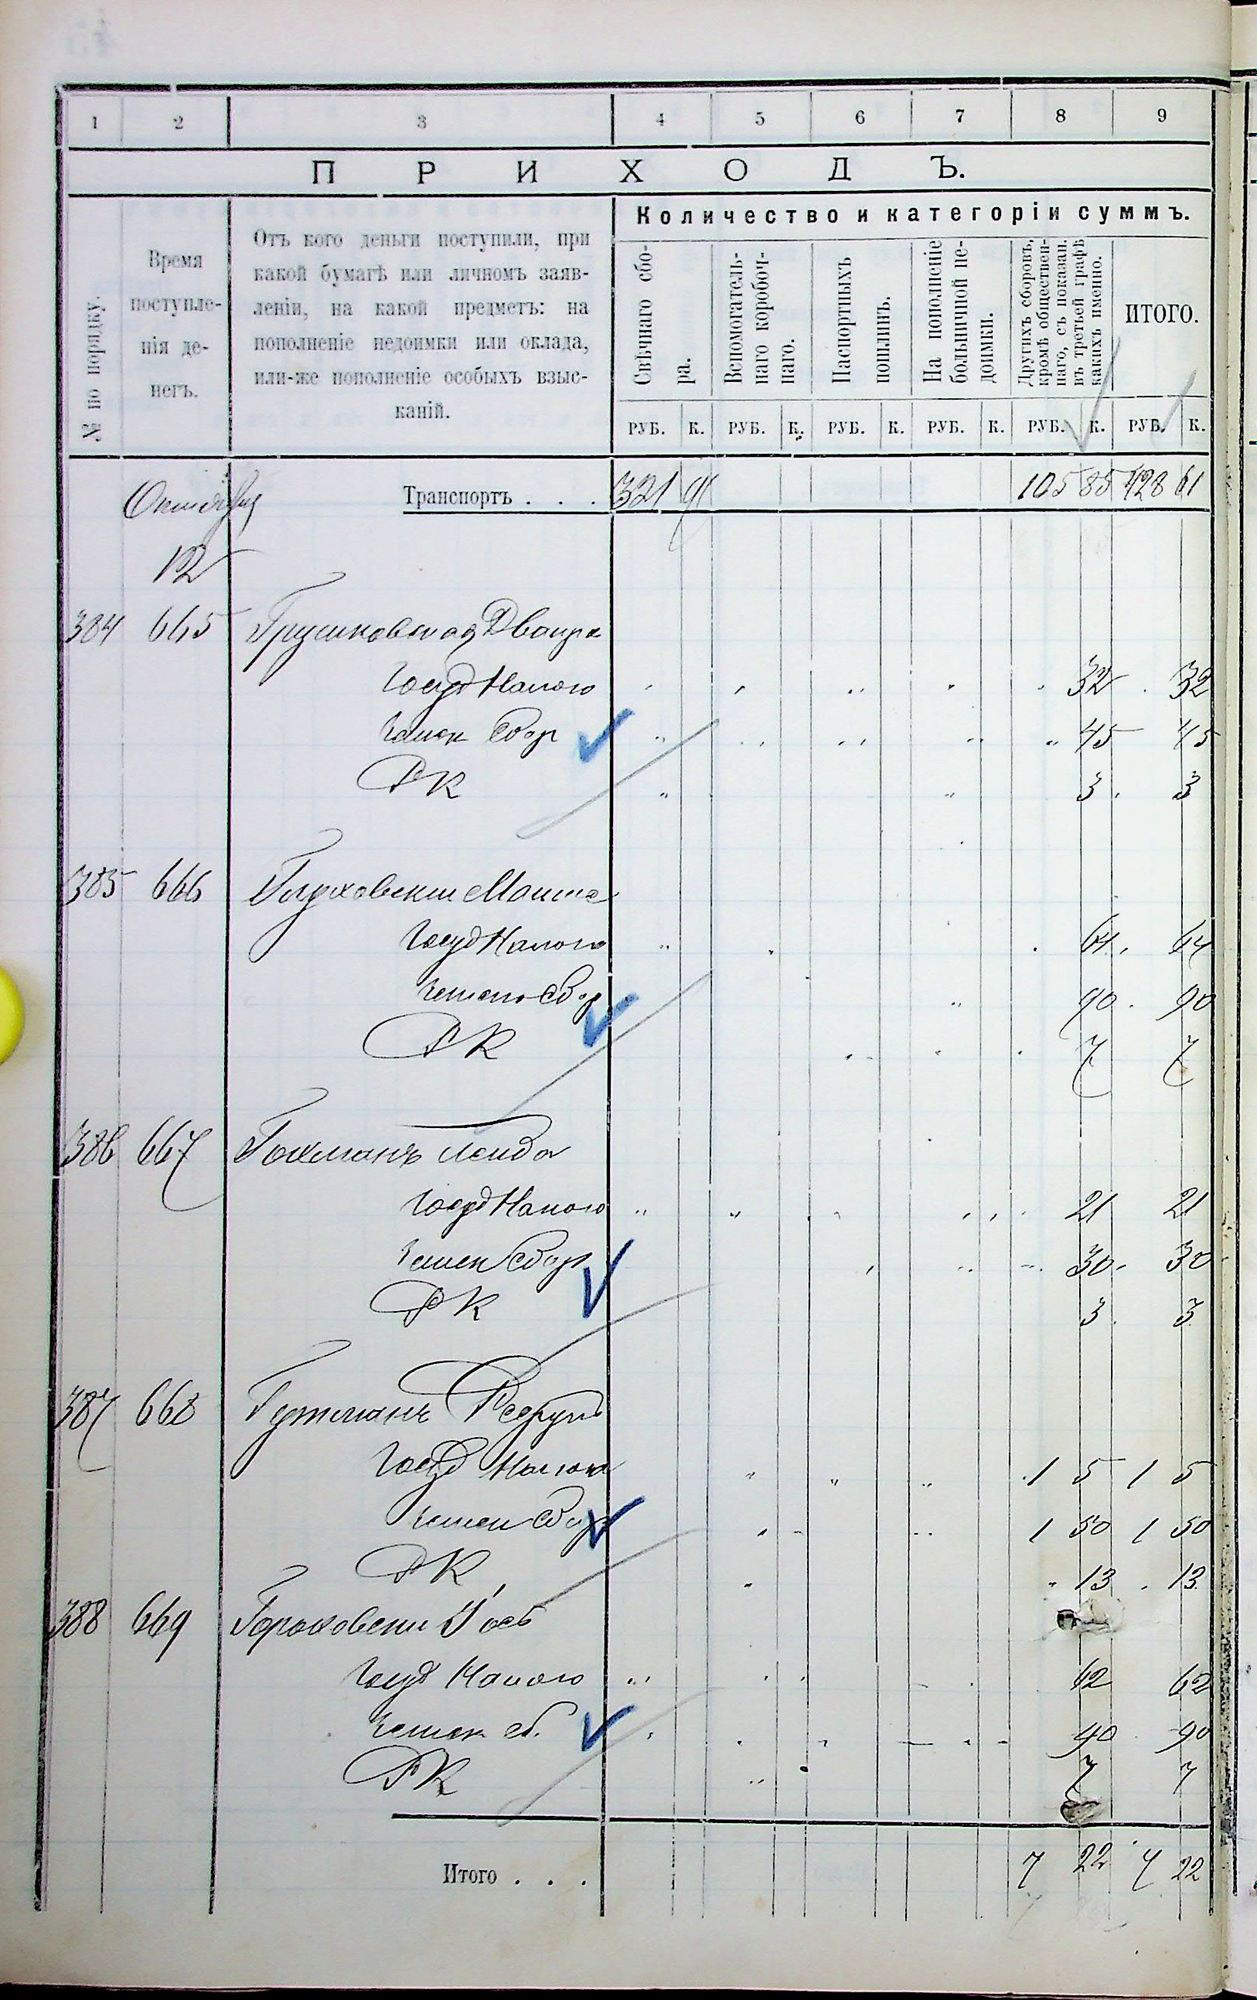 1 2 3 4 5 6 7 8 9
ПРИХОДЪ.
№ по порядку.
Время
поступле-
нія де-
негъ.
Отъ кого деньги поступили, при
какой бумагѣ или личномъ заяв-
леніи, на какой предметъ: на
пополненіе недоимки или оклада,
или-же пополненіе особыхъ взыс-
каній.
Количество и категоріи суммъ.
Свѣчнаго сбо-
ра.
Вспомогатель-
наго коробоч-
наго.
Паспортныхъ
пошлинъ.
На пополненіе
больничной не-
доимки.
Другихъ сборовъ,
кромѣ обществен-
наго, съ показан.
въ третьей графѣ
какихъ именно.
ИТОГО.
РУБ. К. РУБ. К. РУБ. К. РУБ. К. РУБ. К. РУБ. К.
Октября Транспортъ . . . 321 91 105 85 428 61
12
384 665 Грушковская Двойра
Госуд Налого 32 32
Земск Сбор 45 45
РК 3 3
385 666 Глуховскій Мошко
Госуд Налого 64 64
Земск Сбор 90 90
РК 7 7
386 667 Гохманъ Лейба
Госуд Налого 21 21
Земск Сбор 30 30
РК 3 3
387 668 Гутманъ
Госуд Налого 1 5 1 5
Земск Сбор 1 50 1 50
РК 13 13
388 669 Гороховскій Іось
Госуд Налого 62 62
Земск сб. 90 90
РК 7 7
Итого . . . 7 22 7 22